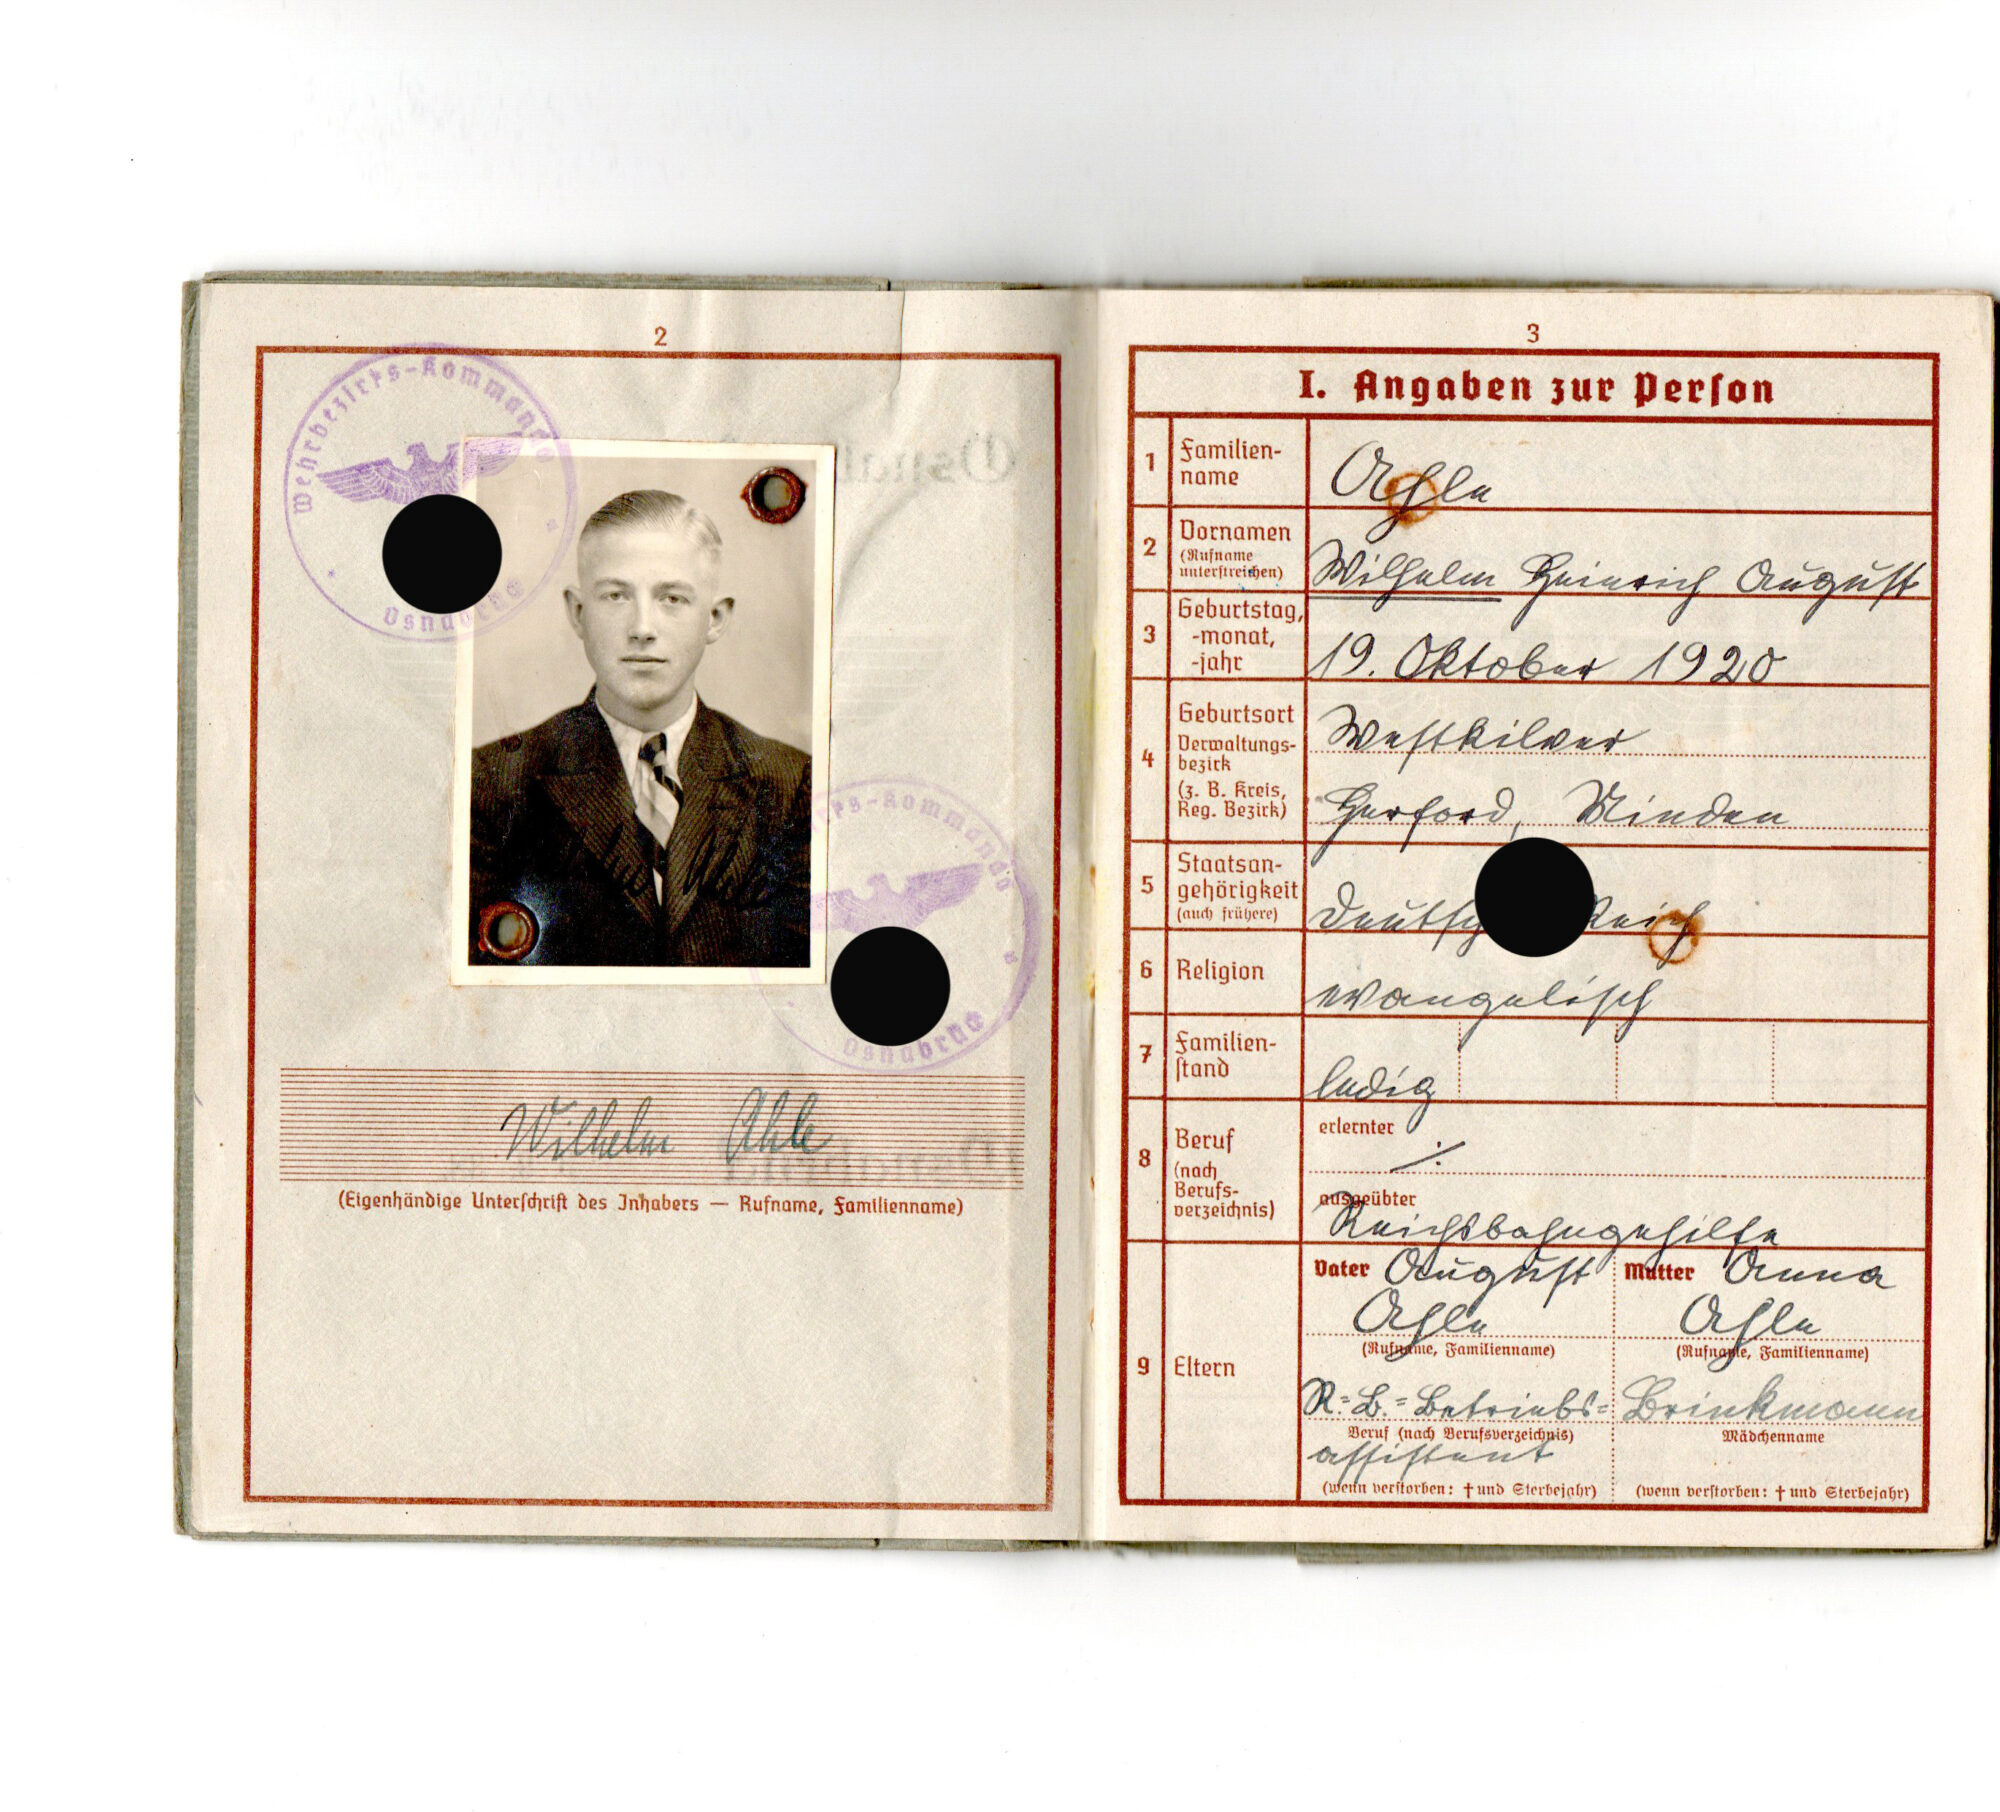 2
Wehrbezirks-Kommando
Osnabrück
rks-Kommando
Osnabrück
Wilhelm Ahle
(Eigenhändige Unterschrift des Inhabers — Rufname, Familienname)
3
I. Angaben zur Person
1 Familien-
name
Ahle
2 Vornamen
(Rufname
unterstreichen)
Wilhelm Heinrich August
3 Geburtstag,
-monat,
-jahr
19. Oktober 1920
4 Geburtsort
Verwaltungs-
bezirk
(z. B. Kreis,
Reg. Bezirk)
Westkilver
Herford, Minden
5 Staatsan-
gehörigkeit
(auch frühere)
Deutsch Reich
6 Religion
evangelisch
7 Familien-
stand
ledig
8 Beruf
(nach
Berufs-
verzeichnis)
erlernter
./.
ausgeübter
Reichsbahngehilfe
9 Eltern
Vater August
Ahle
(Rufname, Familienname)
R.=B.=Betriebs=
Beruf (nach Berufsverzeichnis)
assistent
(wenn verstorben: † und Sterbejahr)
Mutter Anna
Ahle
(Rufname, Familienname)
Brinkmann
Mädchenname
(wenn verstorben: † und Sterbejahr)